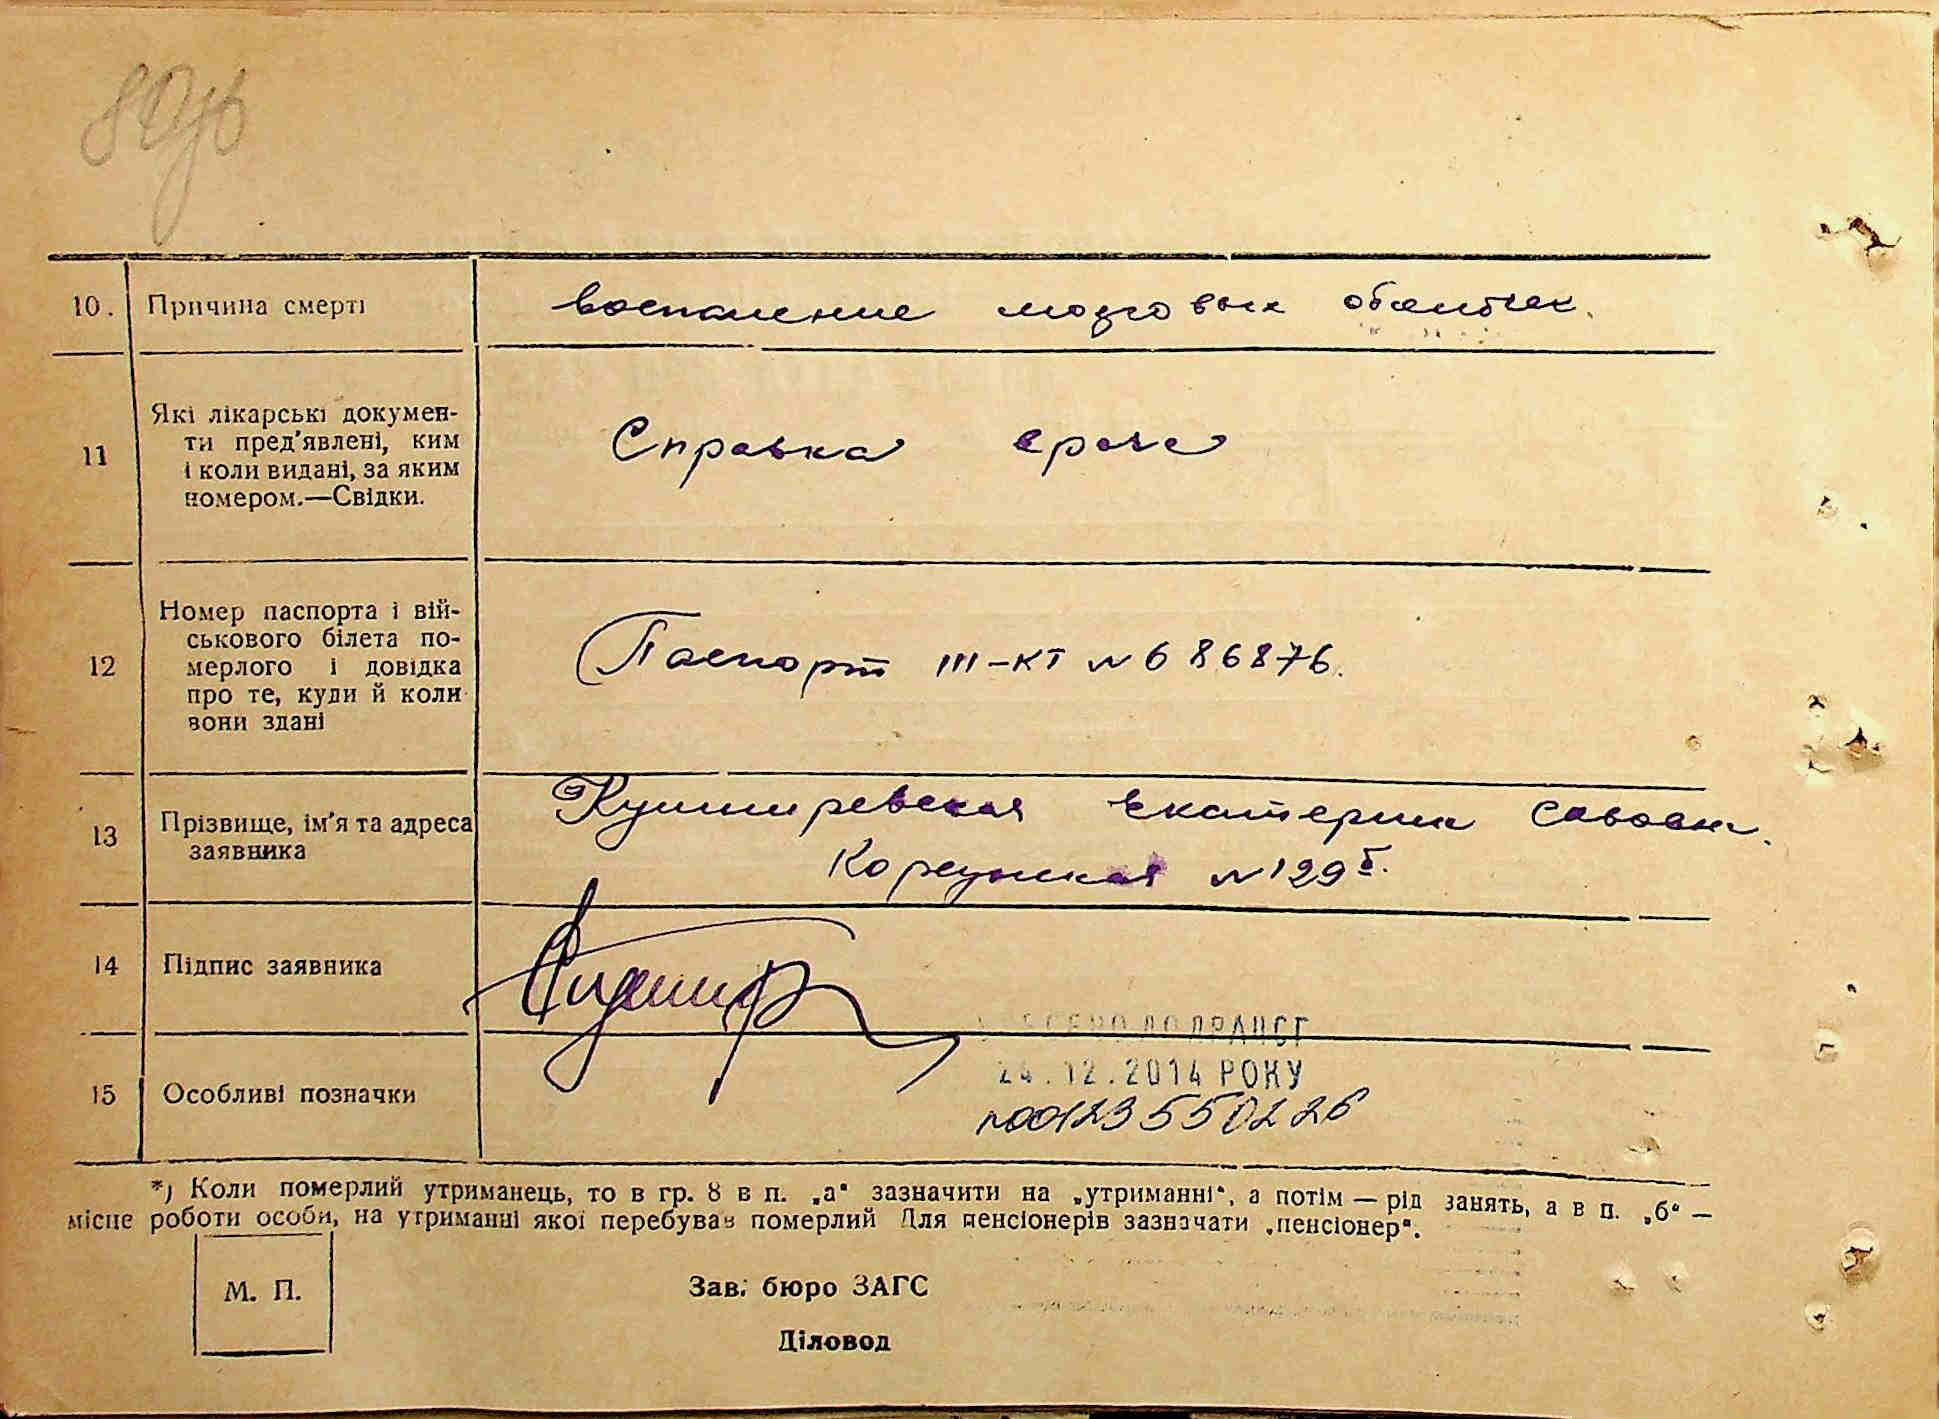 10. Причина смерті воспаление мозговых оболочек.
11 Які лікарські докумен-
ти пред'явлені, ким
і коли видані, за яким
номером.—Свідки.
Справка врача
12 Номер паспорта і вій-
ськового білета по-
мерлого і довідка
про те, куди й коли
вони здані
Паспорт III-КТ № 686876.
13 Прізвище, ім'я та адреса
заявника
Кушниревская Екатерина Саввовна.
Корсунская № 129 б.
14 Підпис заявника
24.12.2014 РОКУ
15 Особливі позначки
№00123550226
*) Коли померлий утриманець, то в гр. 8 в п. „а" зазначити на „утриманні", а потім — рід занять, а в п. „б" —
місце роботи особи, на утриманні якої перебував померлий Для пенсіонерів зазначати „пенсіонер".
М. П.
Зав. бюро ЗАГС
Діловод